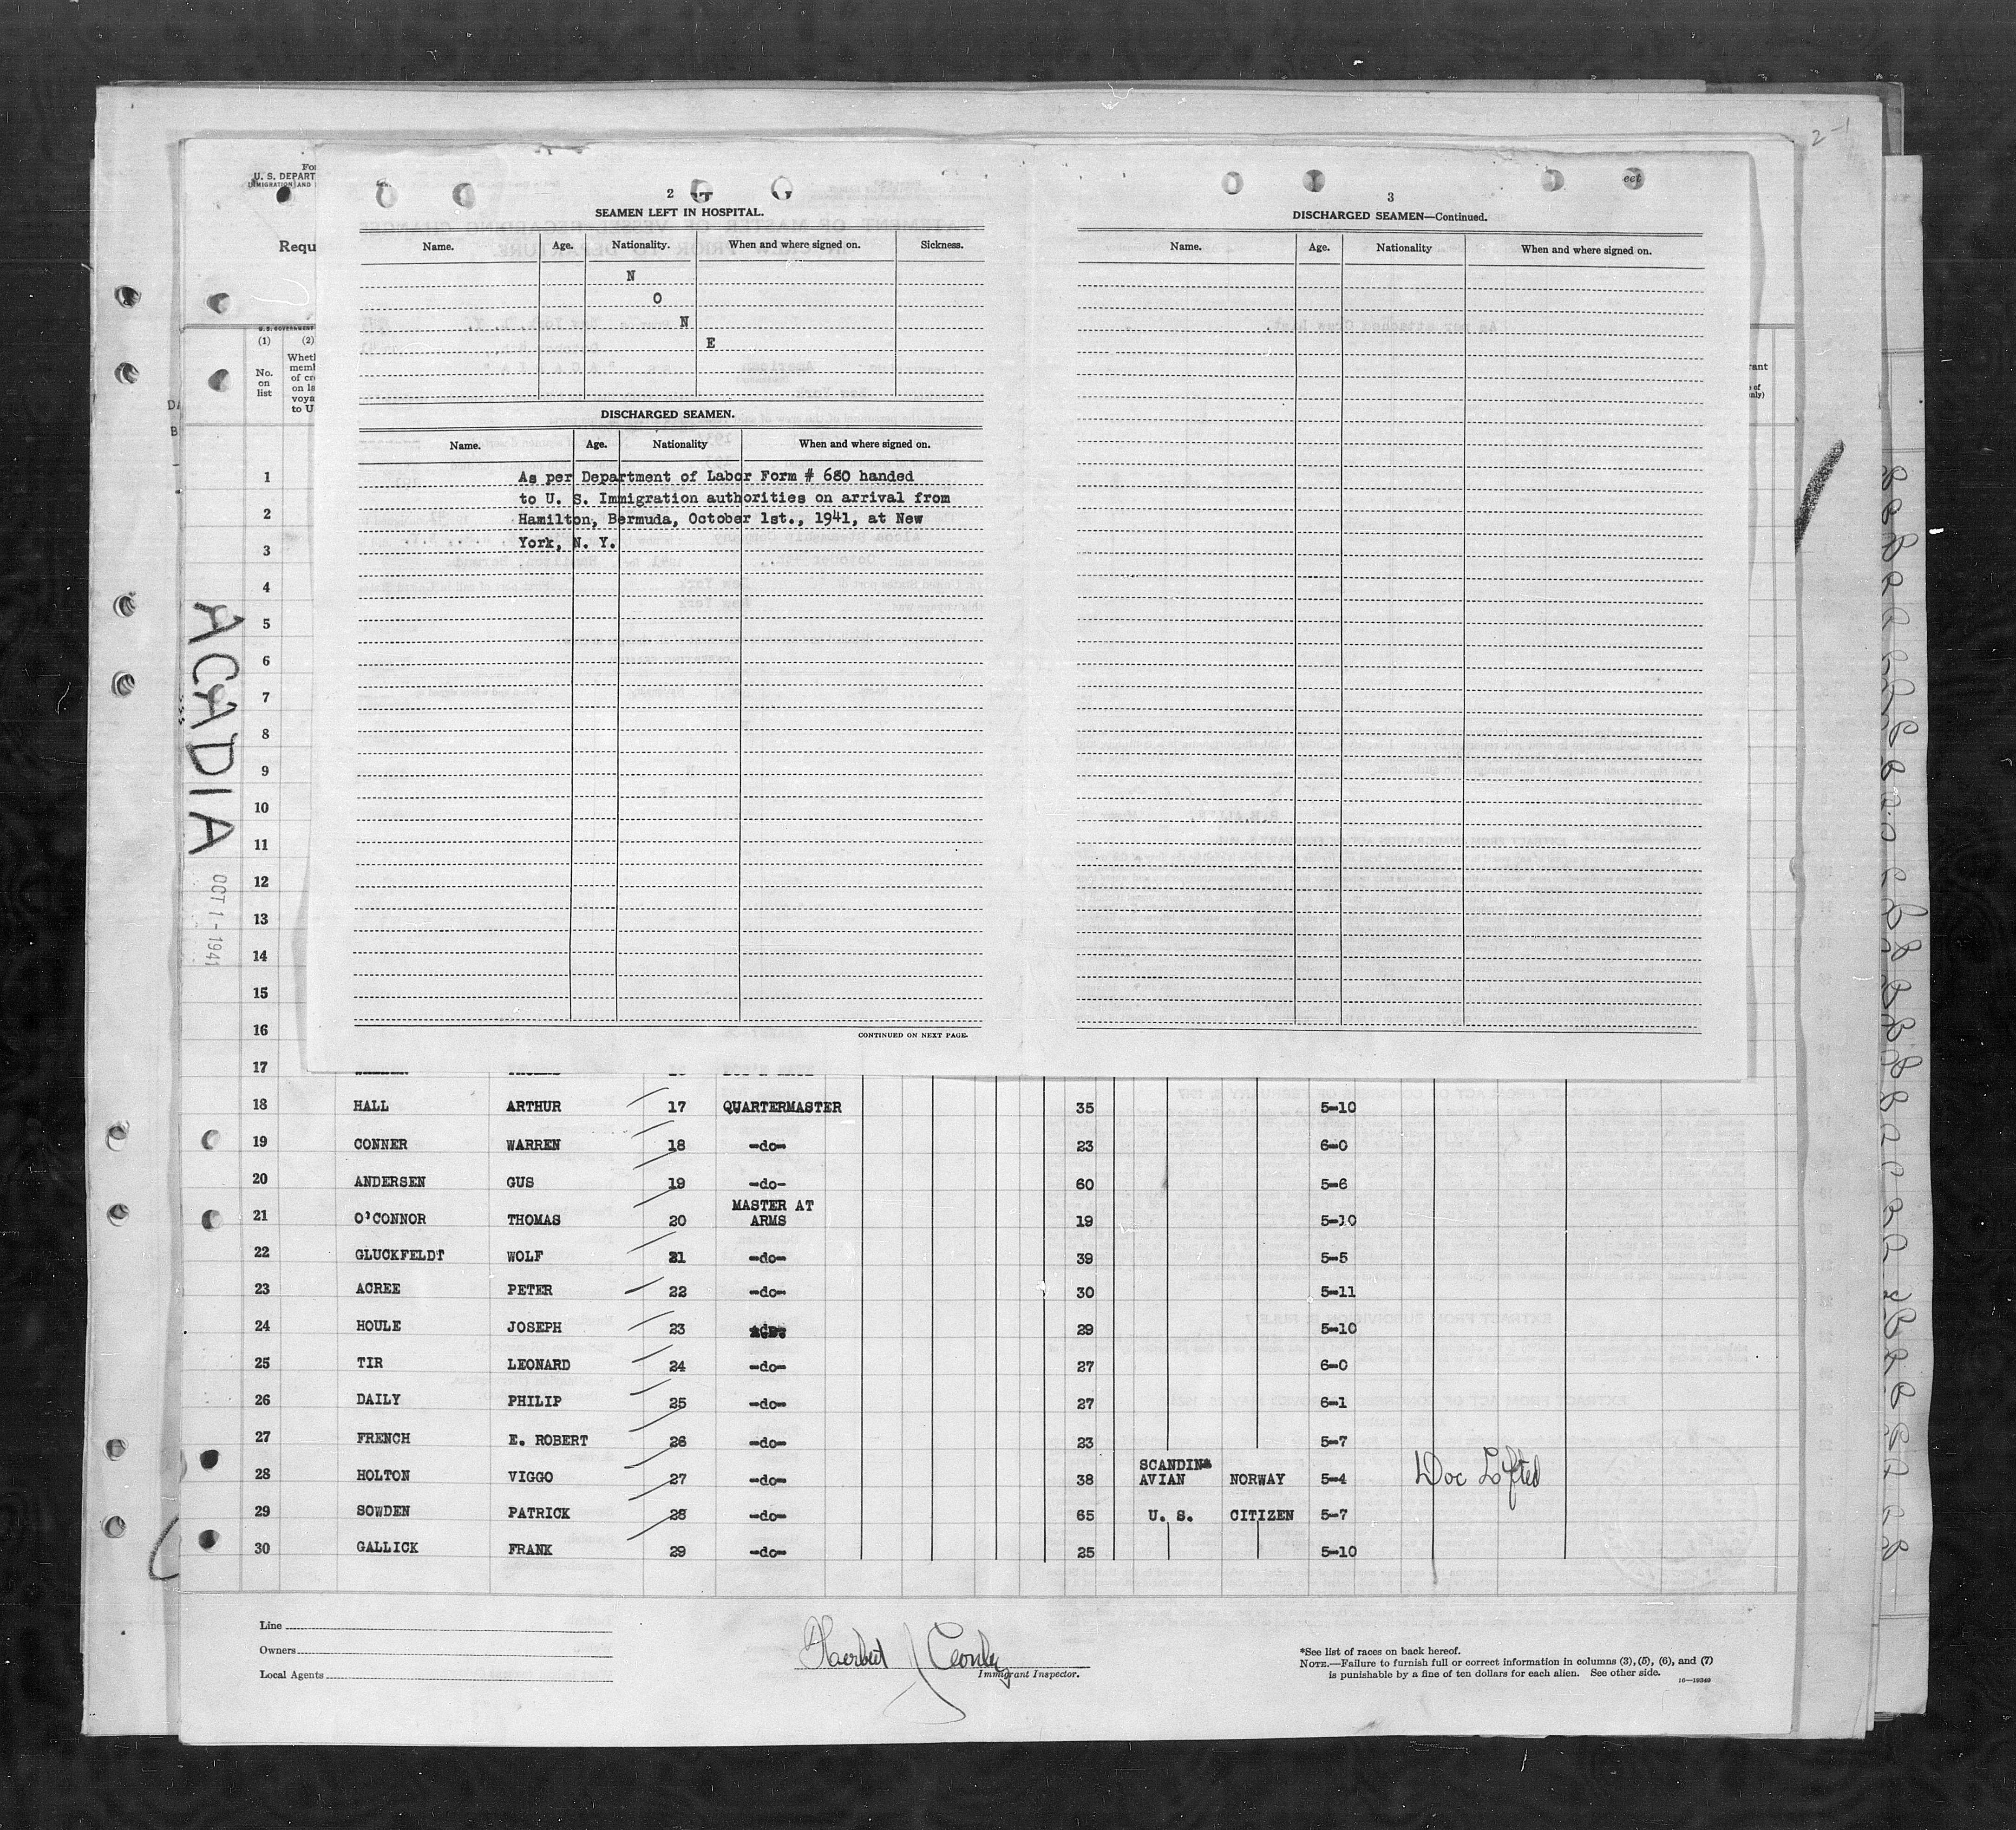 2-1
For
U. S. DEPART
IMMIGRATION AND
Requ
2
SEAMEN LEFT IN HOSPITAL.
Name. Age. Nationality. When and where signed on. Sickness.
N
O
N
E
DISCHARGED SEAMEN.
Name. Age. Nationality When and where signed on.
As per Department of Labor Form # 680 handed
to U. S. Immigration authorities on arrival from
Hamilton, Bermuda, October 1st., 1941, at New
York, N. Y.
CONTINUED ON NEXT PAGE.
3
DISCHARGED SEAMEN—Continued.
Name. Age. Nationality When and where signed on.
U. S. GOVERNMENT
(1) (2)
No.
on
list
Wheth
memb
of cre
on la
voya
to U
ACADIA
OCT 1 - 1941
1
2
3
4
5
6
7
8
9
10
11
12
13
14
15
16
17
18 HALL ARTHUR 17 QUARTERMASTER 35 5-10
19 CONNER WARREN 18 -do- 23 6-0
20 ANDERSEN GUS 19 -do- 60 5-6
21 O'CONNOR THOMAS 20 MASTER AT ARMS 19 5-10
22 GLUCKFELDT WOLF 21 -do- 39 5-5
23 ACREE PETER 22 -do- 30 5-11
24 HOULE JOSEPH 23 29 5-10
25 TIR LEONARD 24 -do- 27 6-0
26 DAILY PHILIP 25 -do- 27 6-1
27 FRENCH E. ROBERT 26 -do- 23 5-7
28 HOLTON VIGGO 27 -do- 38 SCANDINAVIAN NORWAY 5-4 Doc Lifted
29 SOWDEN PATRICK 28 -do- 65 U. S. CITIZEN 5-7
30 GALLICK FRANK 29 -do- 25 5-10
Line
Owners
Local Agents
Immigrant Inspector.
*See list of races on back hereof.
NOTE.—Failure to furnish full or correct information in columns (3), (5), (6), and (7)
is punishable by a fine of ten dollars for each alien. See other side.
16—19349